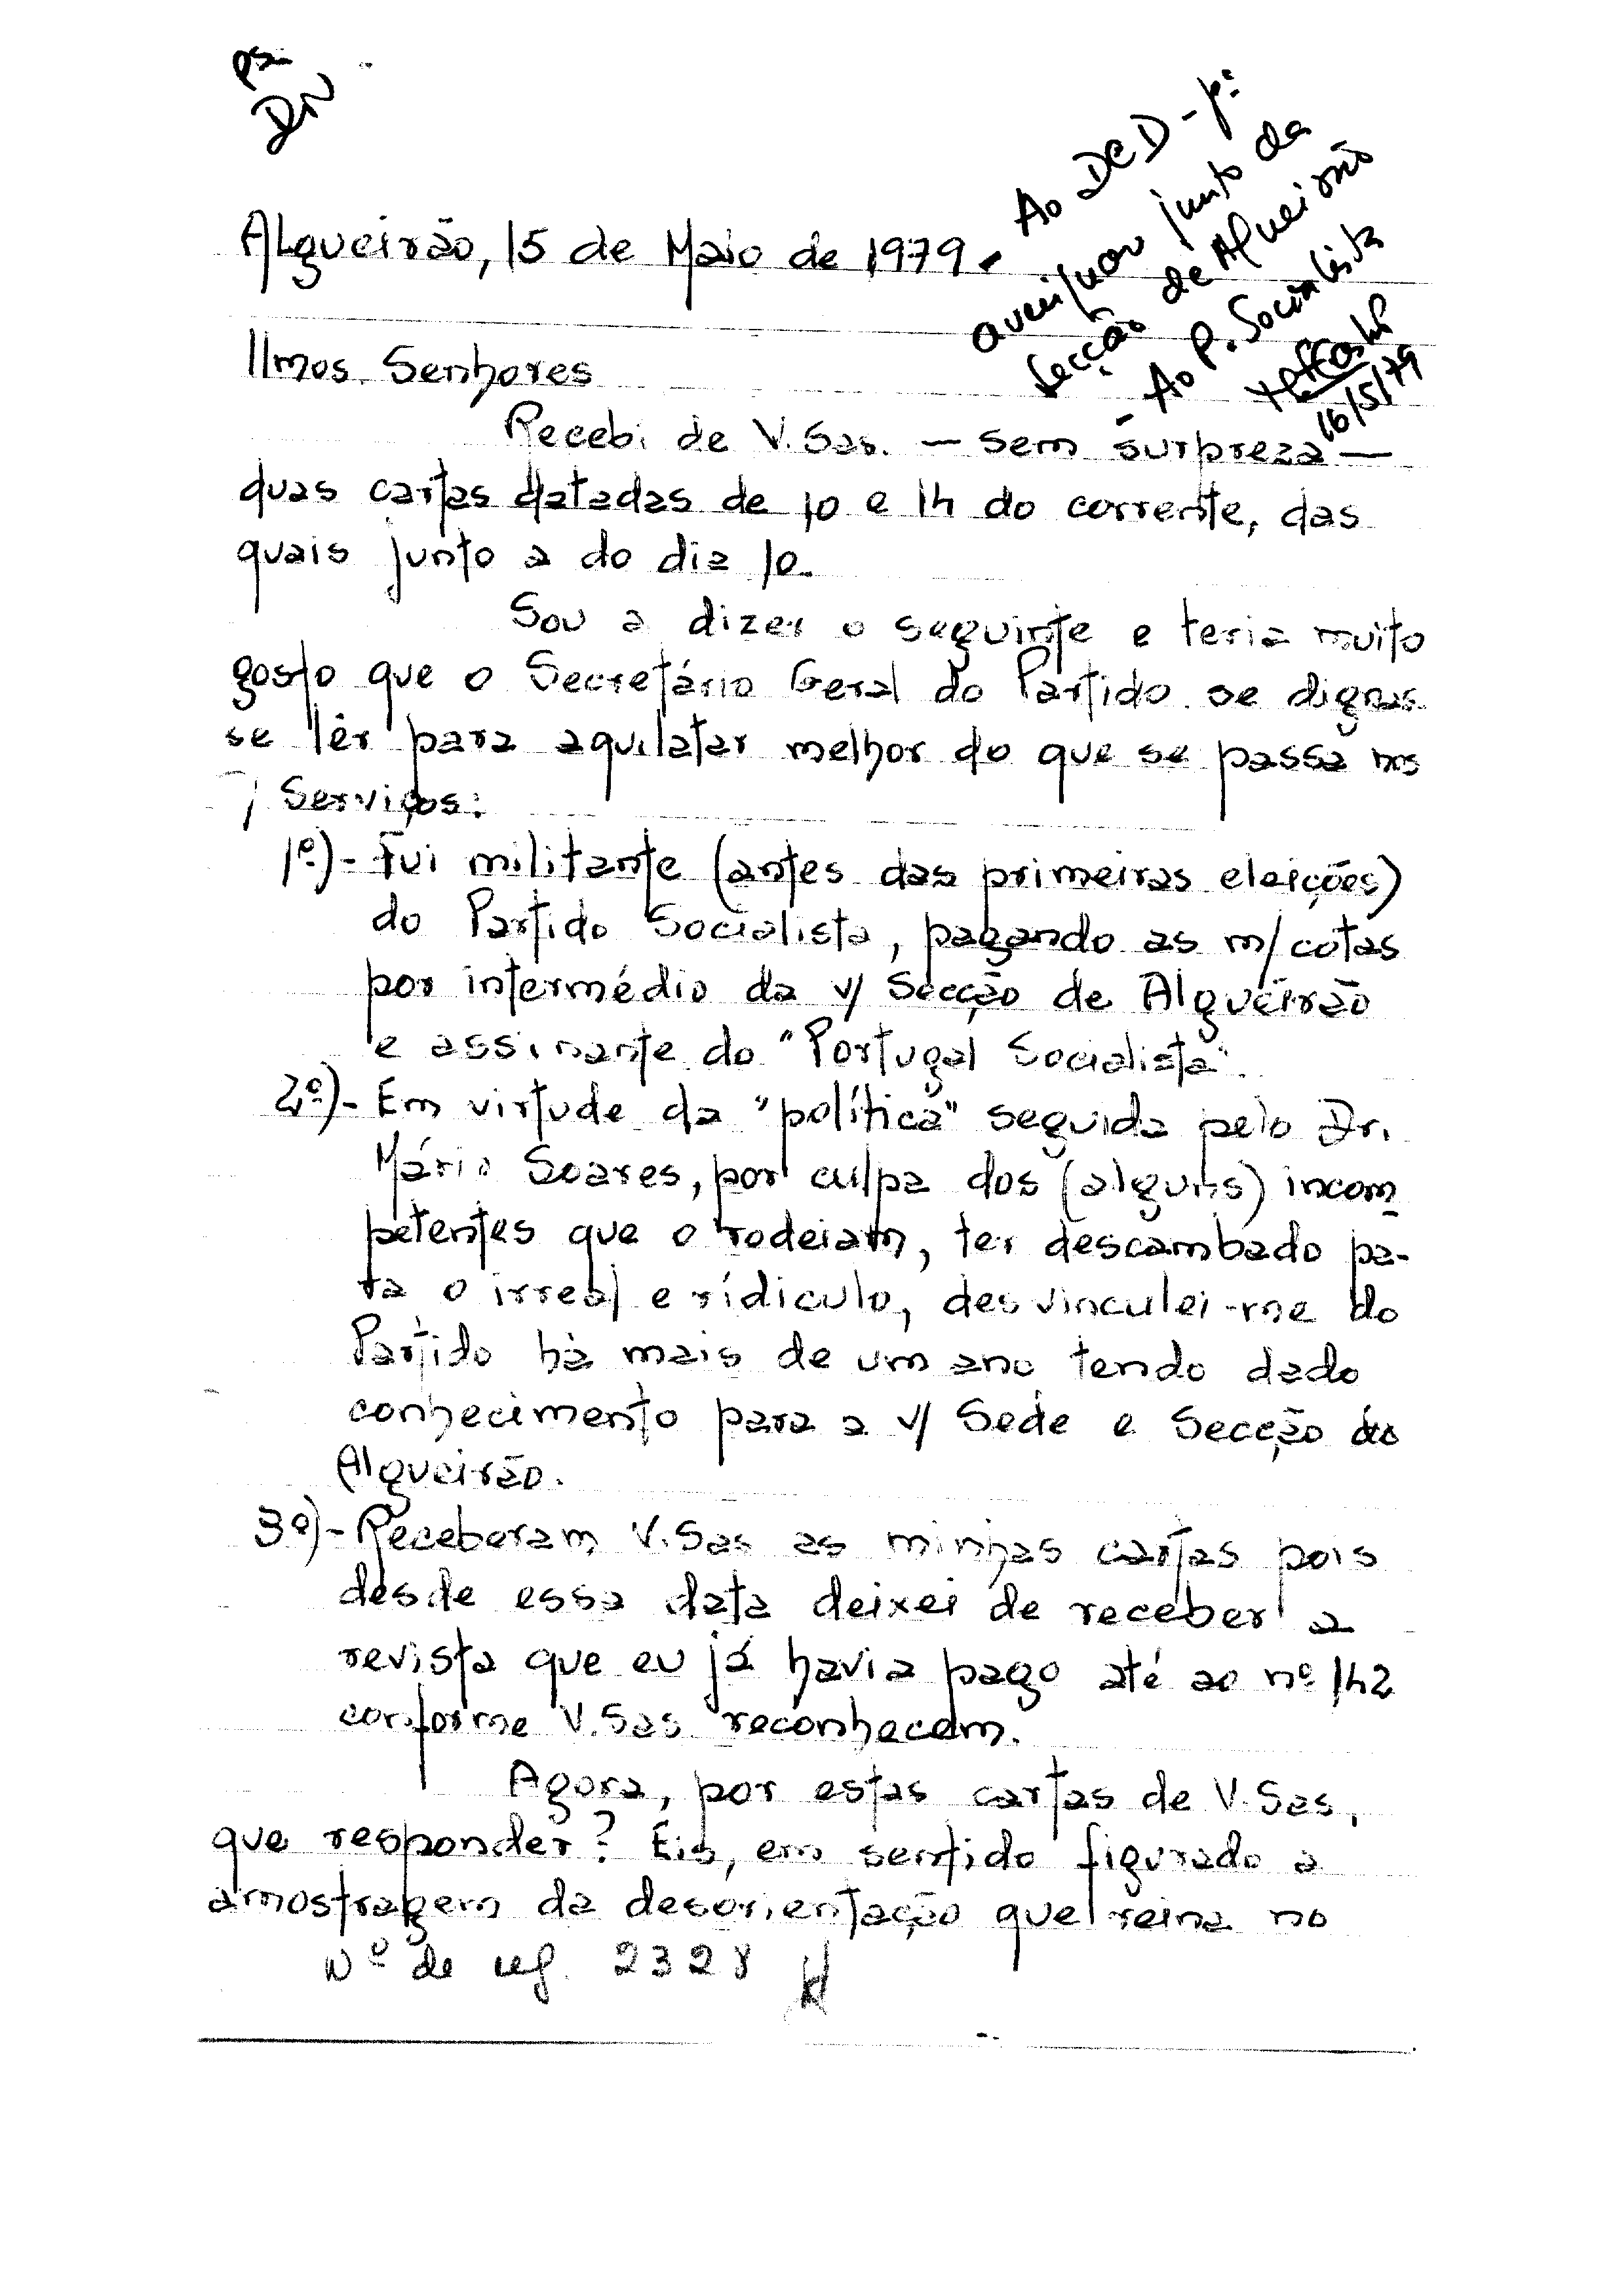 DN
- Ao DCD - pª
averiguar junto da
Secção de Algueirão
- Ao P. Socialista
16/5/79
Algueirão, 15 de Maio de 1979.
Ilmos. Senhores
Recebi de V. Sas. — sem surpreza —
duas cartas datadas de 10 e 14 do corrente, das
quais junto a do dia 10.
Sou a dizer o seguinte e teria muito
gosto que o Secretário Geral do Partido se dignas
se lêr para aquilatar melhor do que se passa nos
/ Serviços:
1º)- Fui militante (antes das primeiras eleições)
do Partido Socialista, pagando as m/ cotas
por intermédio da v/ Secção de Algueirão
e assinante do "Portugal Socialista".
2º)- Em virtude da "política" seguida pelo Dr.
Mário Soares, por culpa dos (alguns) incom
petentes que o rodeiam, ter descambado pa-
ra o irreal e rídiculo, desvinculei-me do
Partido hà mais de um ano tendo dado
conhecimento para a v/ Sede e Secção do
Algueirão.
3º)- Receberam V. Sas as minhas cartas pois
desde essa data deixei de receber a
revista que eu já havia pago até ao nº 142
conforme V. Sas reconhecem.
Agora, por estas cartas de V. Sas,
que responder? Eis, em sentido figurado a
amostragem da desorientação que reina no
Nº de ref. 2328